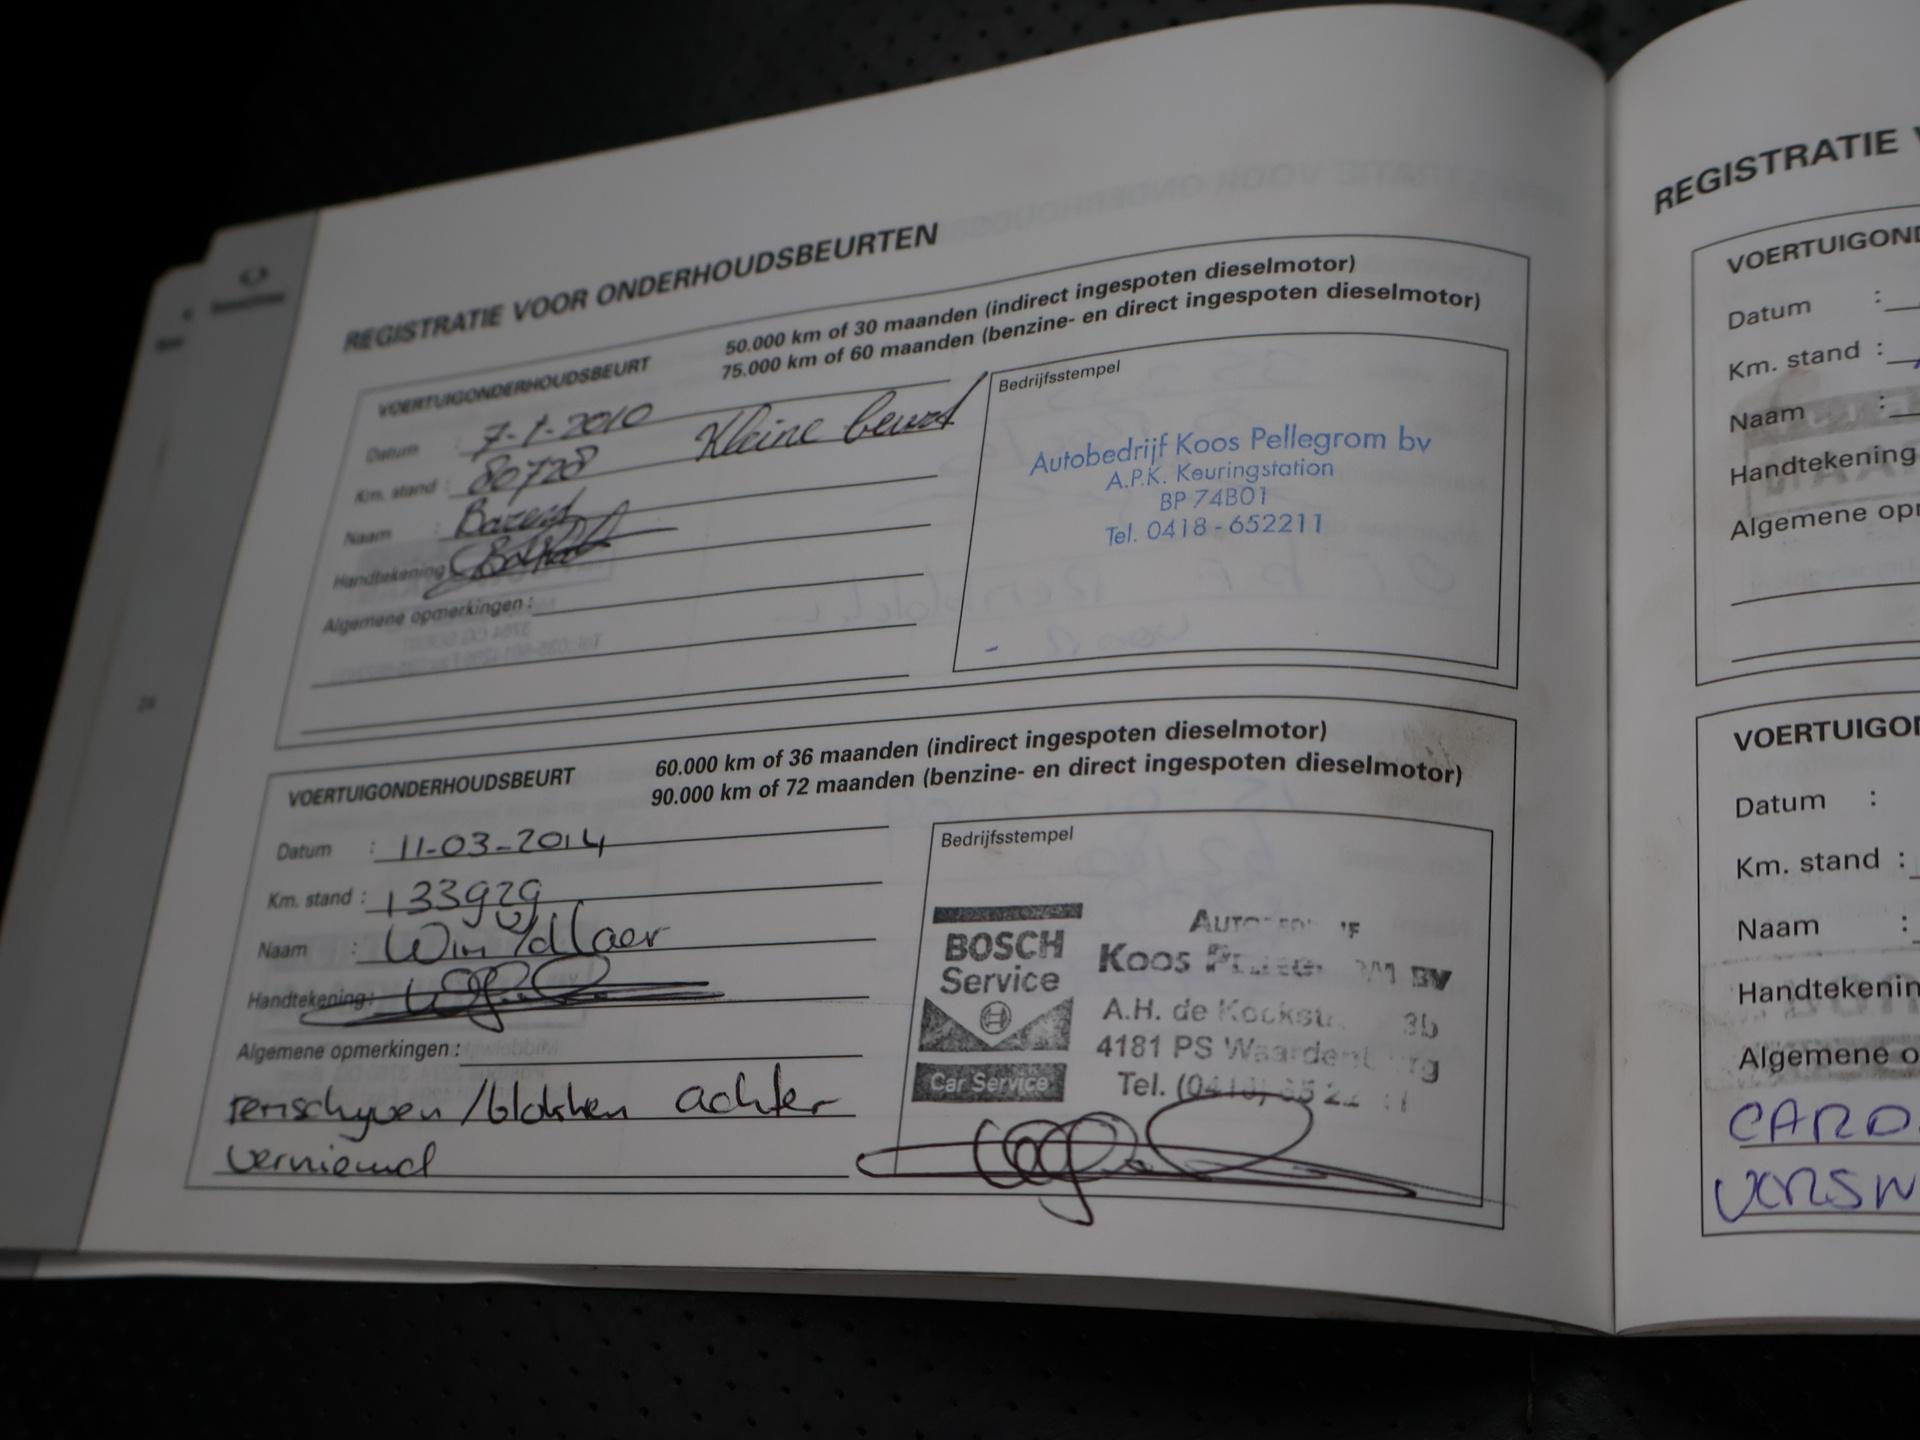 REGISTRATIE VOOR ONDERHOUDSBEURTEN
VOERTUIGONDERHOUDSBEURT
50.000 km of 30 maanden (indirect ingespoten dieselmotor)
75.000 km of 60 maanden (benzine- en direct ingespoten dieselmotor)
Datum : 7-1-2010
Kleine beurt
Km. stand : 80728
Naam : Barend
Handtekening
Algemene opmerkingen :
Bedrijfsstempel
Autobedrijf Koos Pellegrom bv
A.P.K. Keuringstation
BP 74B01
Tel. 0418-652211
VOERTUIGONDERHOUDSBEURT
60.000 km of 36 maanden (indirect ingespoten dieselmotor)
90.000 km of 72 maanden (benzine- en direct ingespoten dieselmotor)
Datum : 11-03-2014
Km. stand : 133929
Naam : Wim
Handtekening:
Algemene opmerkingen :
remschyven/blokken achter
vernieuwd
Bedrijfsstempel
BOSCH
Service
Car Service
Koos BV
A.H. de 3b
4181 PS
Tel.
REGISTRATIE
VOERTUIGOND
Datum :
Km. stand :
Naam :
Handtekening
Algemene opr
VOERTUIGO
Datum :
Km. stand :
Naam :
Handtekenin
Algemene o
CARD